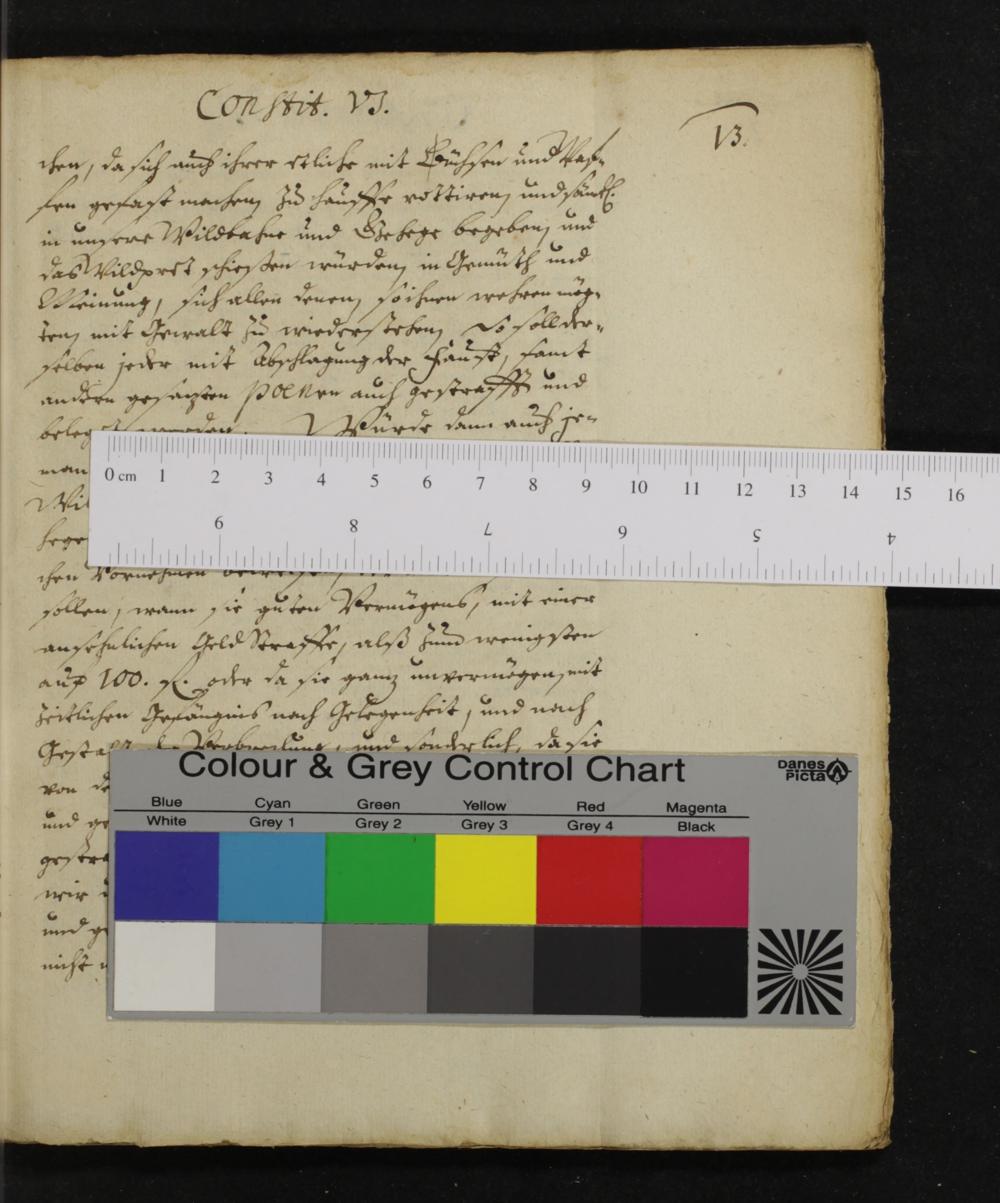 Constit. VI.
13.
chen, da sich auch ihrer etliche mit Büchsen und Waf-
fen gefast machen, zu hauffe rottiren, und sämtl.
in unsere Wildbahne und Gehege begeben, und
das Wildpret schiessen würden, in Gemüth und
Meinung, sich allen denen, so ihnen wehren mög-
ten, mit Gewalt zu wiederstehen, So soll der-
selben jeder mit Abschlagung der Faust, samt
andern gesazten poenen auch gestrafft und
belegt werden. Würde dann auch je-
man
Wil
hege
chen Vornehmen
sollen, wann sie guten Vermögens, mit einer
ansehnlichen Geld Straffe, alß zum wenigsten
auf 100. fl. oder da sie ganz unvermögen, mit
zeitlichen Gefängnis nach Gelegenheit, und nach
Gestalt der Verbrechung, und sonderlich, da sie
von de
und ge
gestra
wir
und ge
nicht
0 cm 1 2 3 4 5 6 7 8 9 10 11 12 13 14 15 16
9 8 7 6 5 4
Colour & Grey Control Chart
Danes Picta
Blue Cyan Green Yellow Red Magenta
White Grey 1 Grey 2 Grey 3 Grey 4 Black